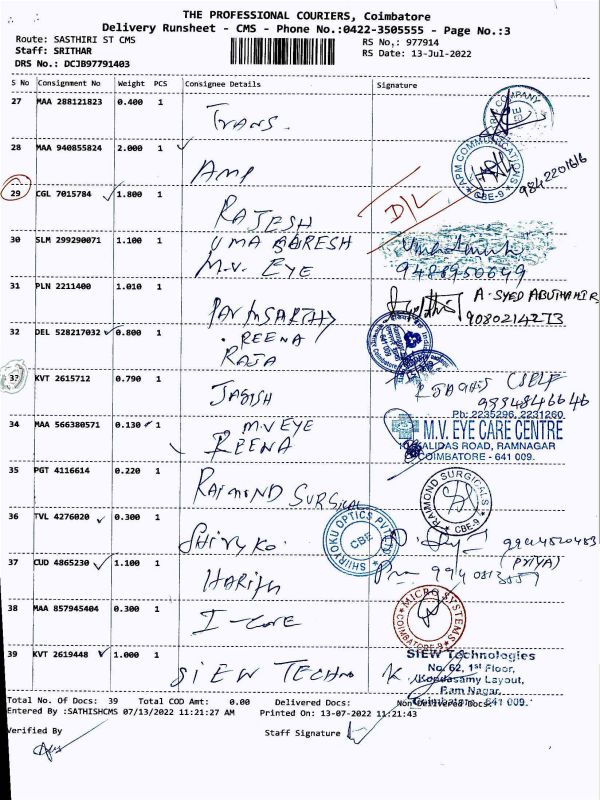 THE PROFESSIONAL COURIERS, Coimbatore
Delivery Runsheet - CMS - Phone No.:0422-3505555 - Page No.:3
Route: SASTHIRI ST CMS
RS No.: 977914
Staff: SRITHAR
RS Date: 13-Jul-2022
DRS No.: DCJB97791403
S No Consignment No Weight PCS Consignee Details Signature
27 MAA 288121823 0.400 1 Trans.
COMPANY
28 MAA 940855824 2.000 1 AMP
APM COMMUNICATIONS
CBE-9
9842201616
29 CGL 7015784 1.800 1 RAJESH
D/L
30 SLM 299290071 1.100 1 UMA SURESH
M.V. EYE
9488950649
31 PLN 2211400 1.010 1 PARTHSARTHY
A. SYED ABUTHAHIR
9080214273
32 DEL 528217032 0.800 1 REENA
RAJA
641 009
KVT 2615712 0.790 1 JAGISH
9994846646
34 MAA 566380571 0.130 1 M.V EYE
REENA
Ph: 2235296, 2231260
M.V. EYE CARE CENTRE
KALIDAS ROAD, RAMNAGAR
COIMBATORE - 641 009.
35 PGT 4116614 0.220 1 RAIMOND SURGICAL
RAIMOND SURGICALS
CBE-9
36 TVL 4276020 0.300 1 SHIRYKO.
SHIRYOKU OPTICS PVT LTD
CBE
(PRIYA)
37 CUD 4865230 1.100 1 HARISH
38 MAA 857945404 0.300 1 I-CARE
MICRO SYSTEMS
COIMBATORE-9
39 KVT 2619448 1.000 1 SIEW TECHNO
SIEW Technologies
No. 62, 1st Floor,
Kondasamy Layout,
Ram Nagar,
Coimbatore - 641 009.
Total No. Of Docs: 39 Total COD Amt: 0.00 Delivered Docs: Non Delivered Docs:
Entered By :SATHISHCMS 07/13/2022 11:21:27 AM Printed On: 13-07-2022 11:21:43
Verified By Staff Signature